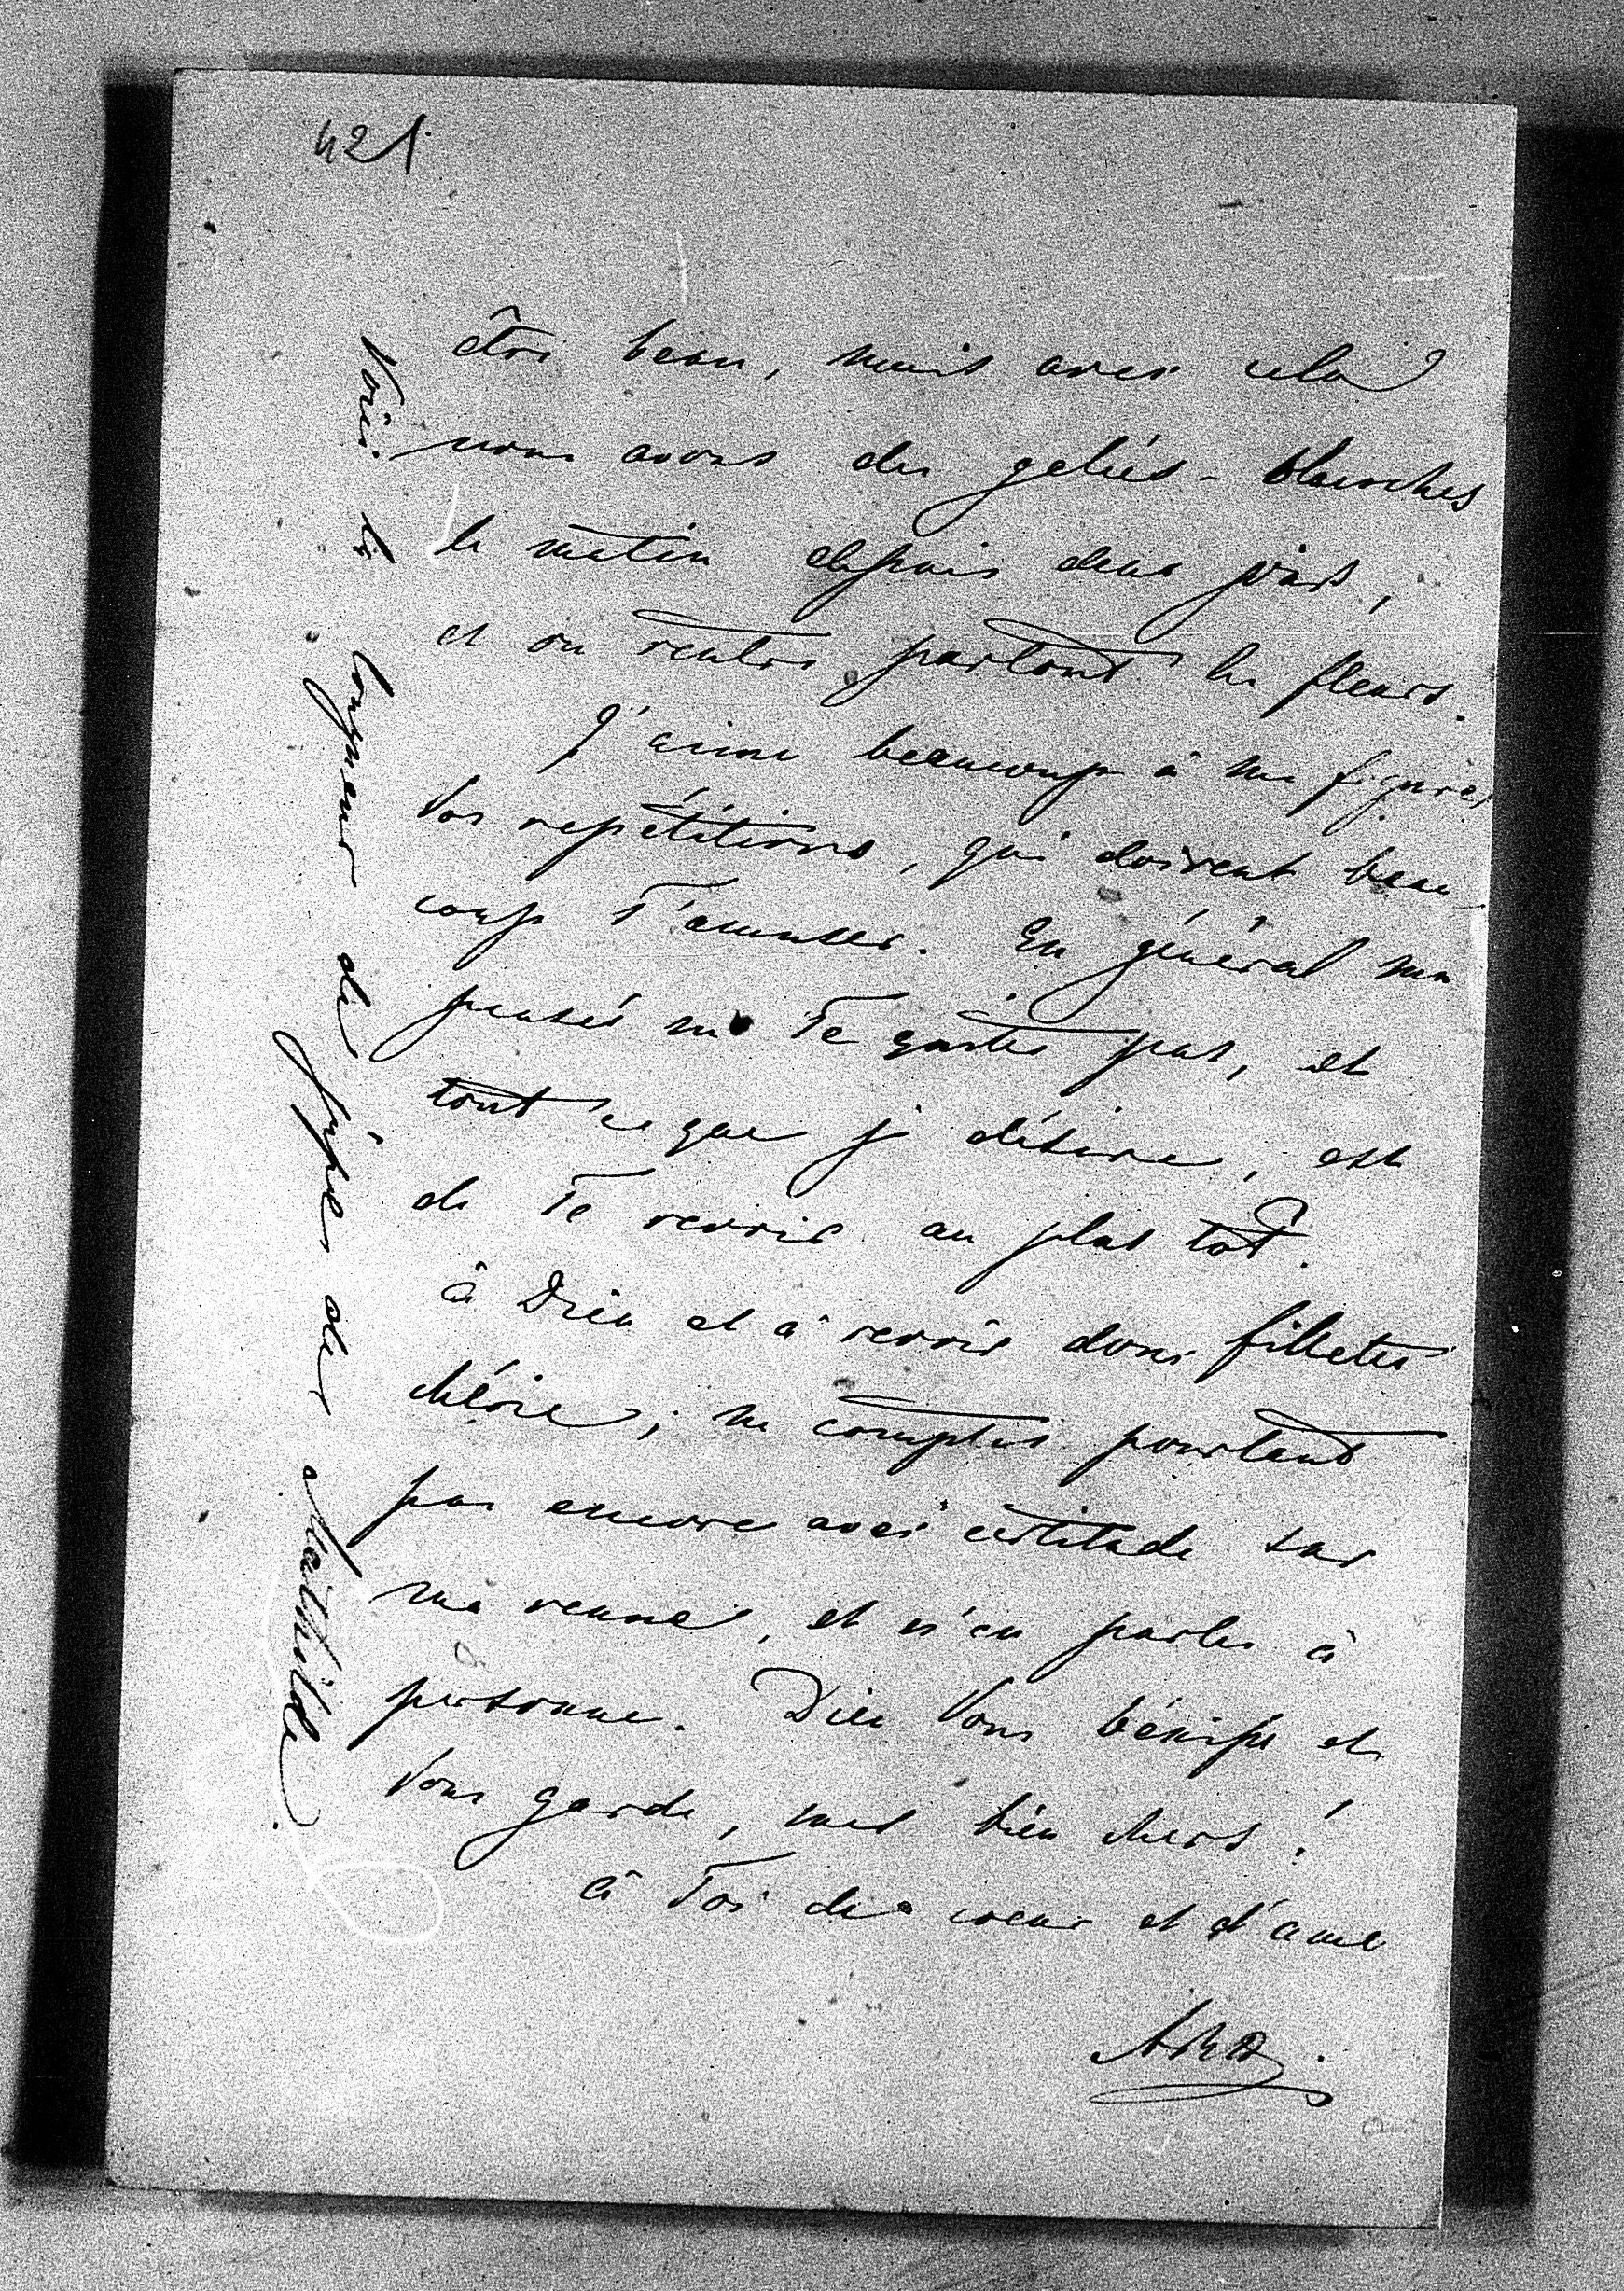 421
être beau, mais avec cela
nous avons des gelées-blanches
le matin depuis deux jours,
et on rentre partout les fleurs.
J'aime beaucoup à me figurer
Vos repétitions, qui doivent beau
coup T'amuser. En général ma
pensée ne Te quitte pas, et
tout ce que je désire, est
de Te revoir au plus tôt.
à Dieu et à revoir donc fillette
chérie; ne comptes pourtant
pas encore avec certitude sur
ma venue, et n'en parles à
personne. Dieu Vous bénisse et
Vous garde, mes bien chers!
à Toi de coeur et d'ame
Voici la longueur de jupe de Mathilde.